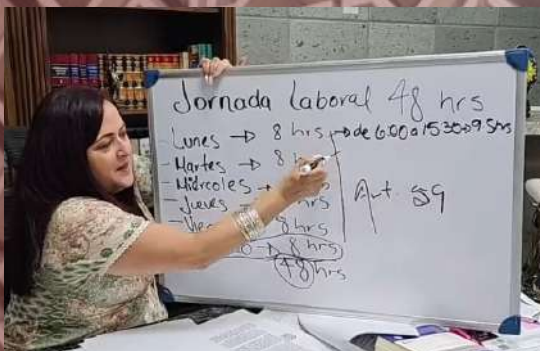 Jornada laboral 48 hrs
- Lunes → 8 hrs → de 6:00 a 15:30 → 9.5 hrs
- Martes → 8
- Miércoles →
- Jueves - hrs
- 8 hrs
→ 8 hrs
48 hrs
Art. 59